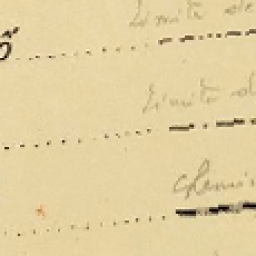 Limite de
Limite d
Chemin